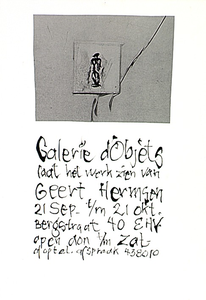 Galerie d'Objets
laat het werk zien van
Geert Hermsen
21 Sep. t/m 21 okt.
Bergstraat 40 EHV
open don t/m Zat
of op tel. afspraak 438010